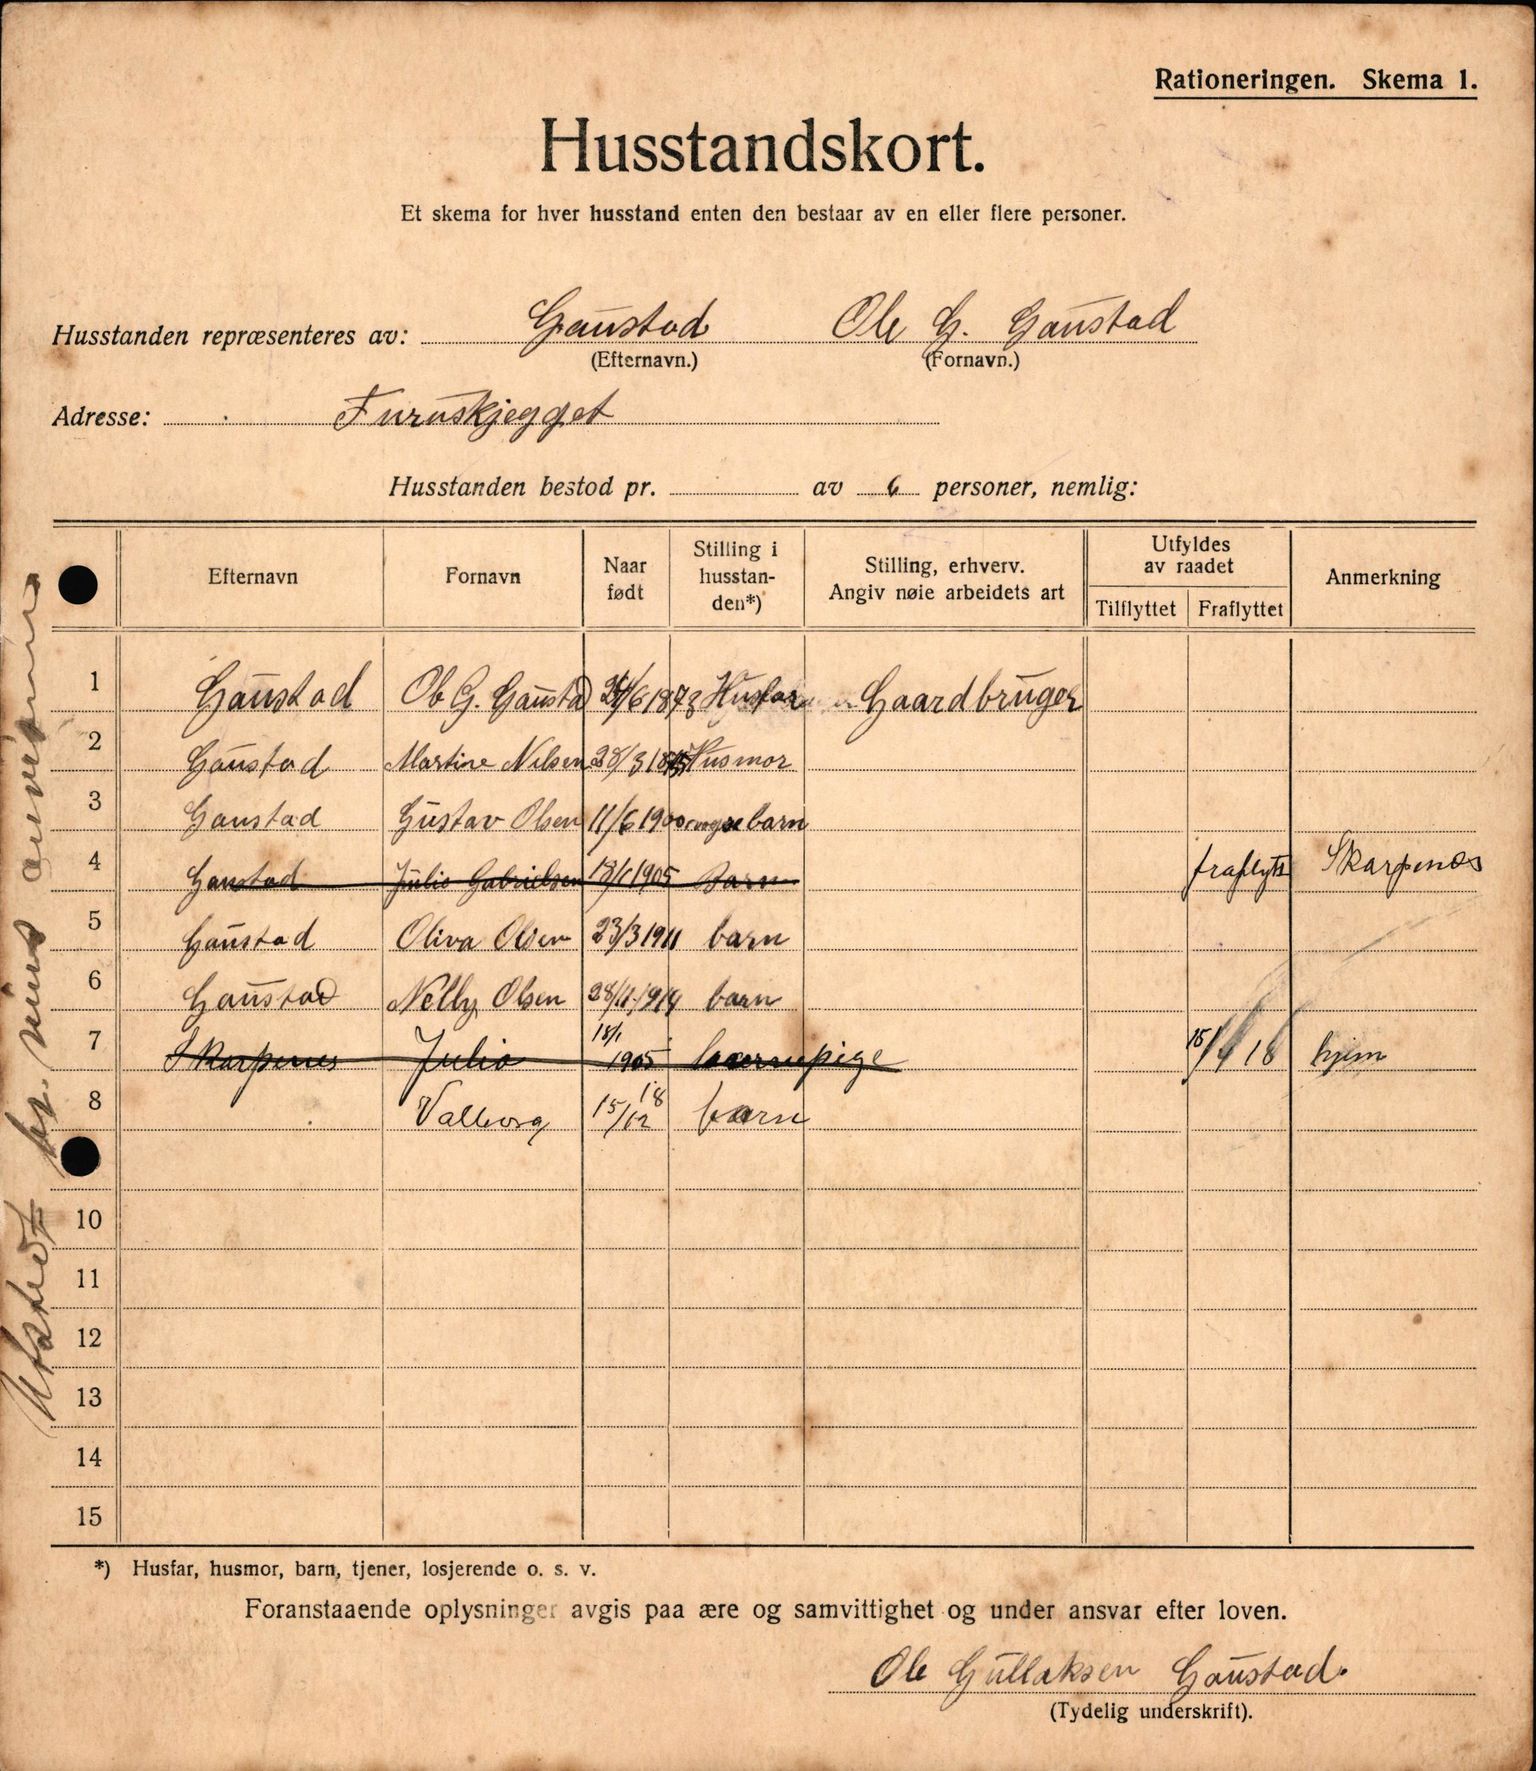 Rationeringen. Skema 1.
Husstandskort.
Et skema for hver husstand enten den bestaar av en eller flere personer.
Husstanden repræsenteres av: Gaustad Ole G. Gaustad
(Efternavn.) (Fornavn.)
Adresse: Furuskjegget
Husstanden bestod pr. av 6 personer, nemlig:
Efternavn Fornavn Naar født Stilling i husstanden*) Stilling, erhverv. Angiv nøie arbeidets art Utfyldes av raadet Tilflyttet Fraflyttet Anmerkning
1 Gaustad Ole G. Gaustad /6 1873 Husfar Gaardbruger
2 Gaustad Martine Nilsen 28/3 18 Husmor
3 Gaustad Gustav Olsen 11/6 1900 barn
4 Gaustad Julie Gabrielsen 18/1 1905 Barn fraflytt Skarpenes
5 Gaustad Oliva Olsen 23/3 1911 barn
6 Gaustad Nelly Olsen 28/11 1914 barn
7 Skarpenes Julie 18/1 1905 barnepige 15/4 18 hjem
8 Valborg 15/12 18 barn
10
11
12
13
14
15
*) Husfar, husmor, barn, tjener, losjerende o. s. v.
Foranstaaende oplysninger avgis paa ære og samvittighet og under ansvar efter loven.
Ole Gullaksen Gaustad.
(Tydelig underskrift).